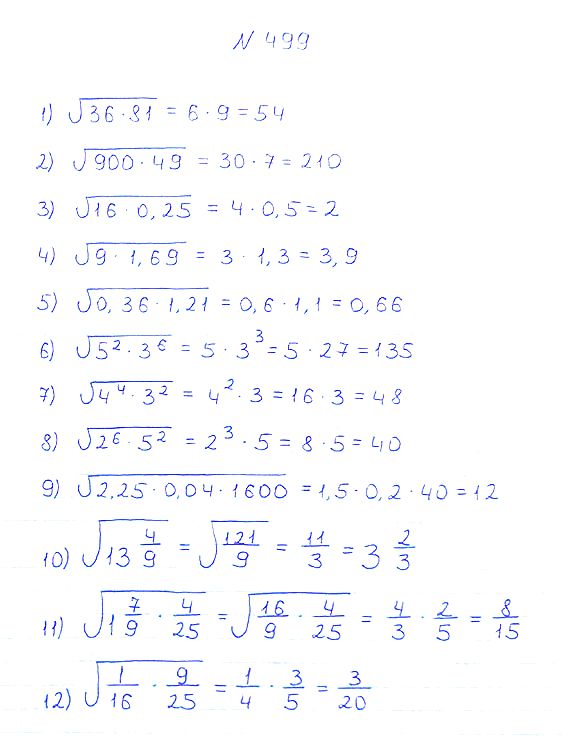 N 499
1) √36·81 = 6·9 = 54
2) √900·49 = 30·7 = 210
3) √16·0,25 = 4·0,5 = 2
4) √9·1,69 = 3·1,3 = 3,9
5) √0,36·1,21 = 0,6·1,1 = 0,66
6) √5²·3⁶ = 5·3³ = 5·27 = 135
7) √4⁴·3² = 4²·3 = 16·3 = 48
8) √2⁶·5² = 2³·5 = 8·5 = 40
9) √2,25·0,04·1600 = 1,5·0,2·40 = 12
10) √13 4/9 = √121/9 = 11/3 = 3 2/3
11) √1 7/9 · 4/25 = √16/9 · 4/25 = 4/3 · 2/5 = 8/15
12) √1/16 · 9/25 = 1/4 · 3/5 = 3/20